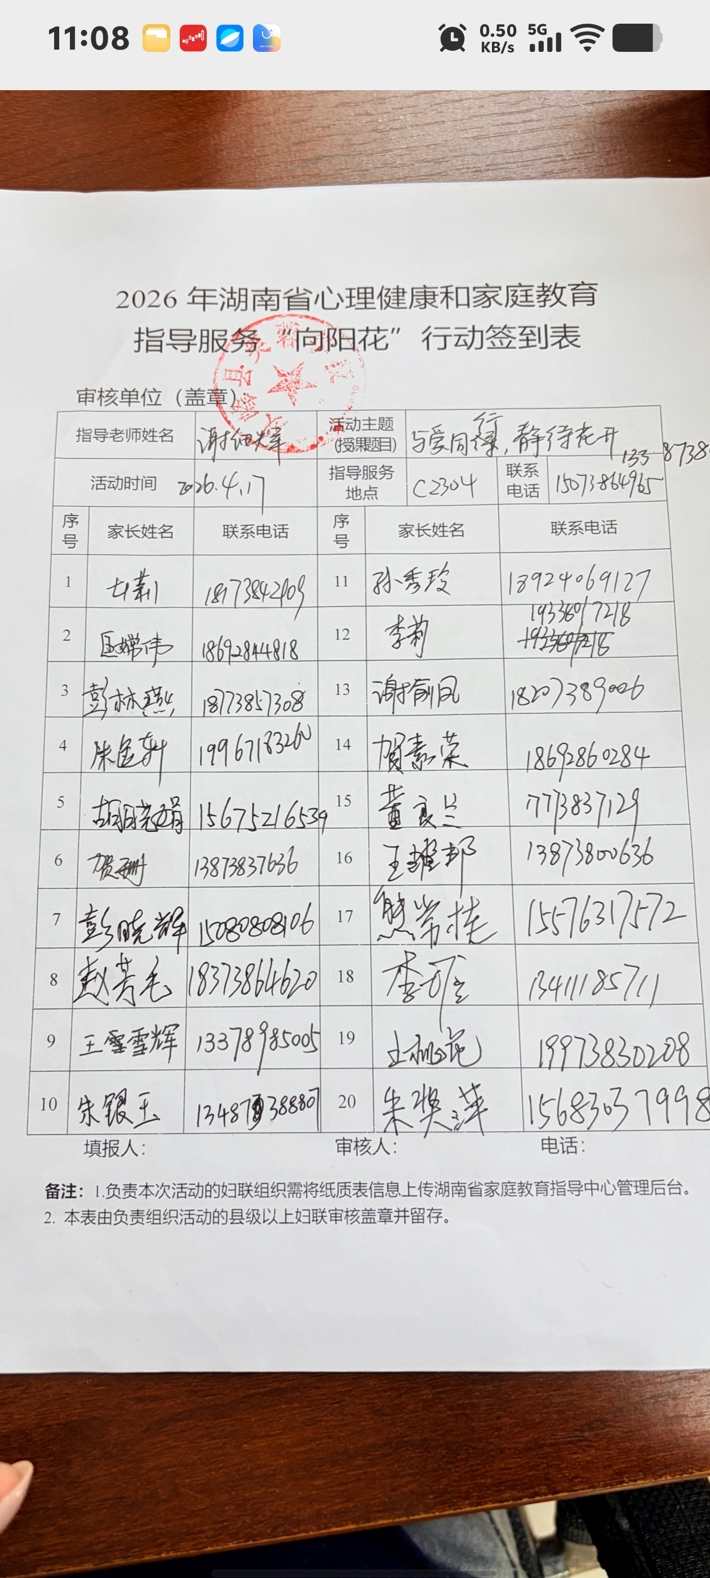 11:08
0.50 KB/s 5G
2026 年湖南省心理健康和家庭教育
指导服务“向阳花”行动签到表
审核单位（盖章）
指导老师姓名 活动主题（授课题目） 与爱同行，静待花开
活动时间 2026.4.17 指导服务地点 C2304 联系电话 15073864965
序号 家长姓名 联系电话 序号 家长姓名 联系电话
1 11 孙秀玲 18924069127
2 18692844818 12 李莉 19336017218
3 彭林燕 18773857308 13 谢俞凤 18207389006
4 朱金轩 19967183260 14 贺嘉荣 18692860284
5 胡晓娟 15675216539 15 董良兰 7773837129
6 贺珊 13873837636 16 王雄邦 13873800636
7 彭晓辉 15080808106 17 熊常桂 15576317572
8 赵芳毛 18373864620 18 13411185711
9 王雪辉 13378985005 19 19973830208
10 朱银玉 20 朱焕萍 15683037998
填报人： 审核人： 电话：
备注：1.负责本次活动的妇联组织需将纸质表信息上传湖南省家庭教育指导中心管理后台。
2. 本表由负责组织活动的县级以上妇联审核盖章并留存。